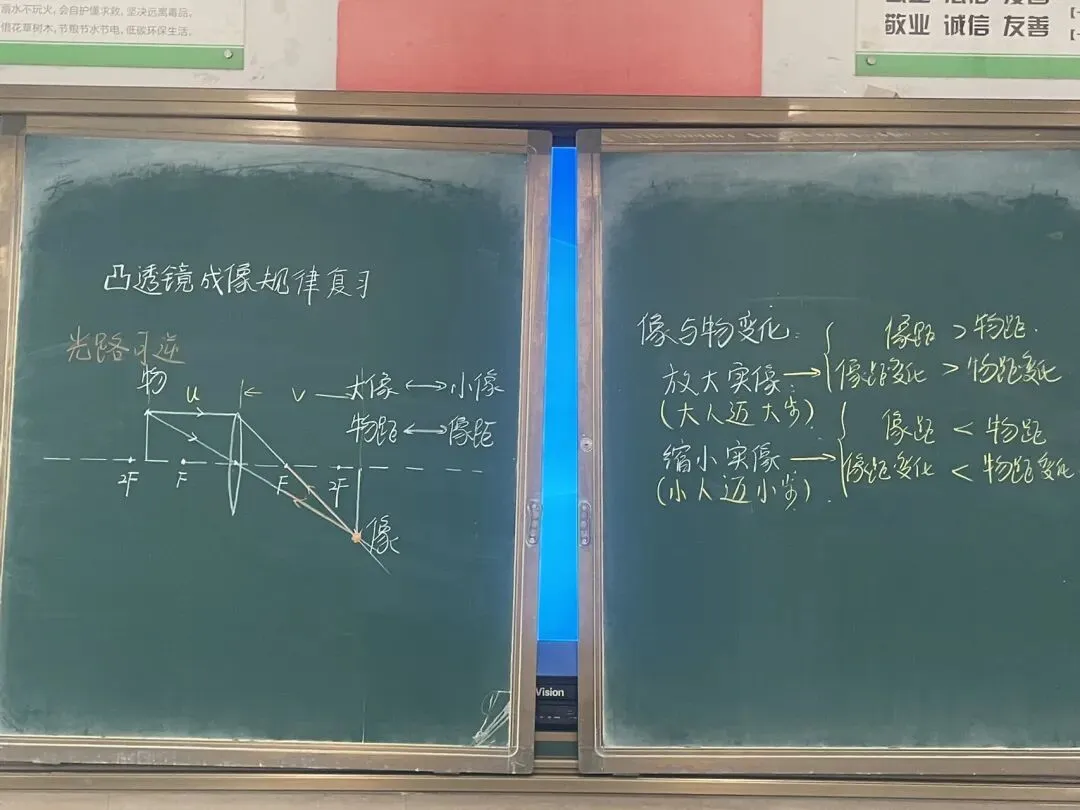 丽水不玩火,会自护懂求救,坚决远离毒品。
惜花草树木,节粮节水节电,低碳环保生活。
敬业 诚信 友善
凸透镜成像规律复习
光路可逆
物
u
v
大像 ↔ 小像
物距 ↔ 像距
2F F F 2F
像
Vision
像与物变化:
放大实像 → { 像距 > 物距.
像距变化 > 物距变化
(大人迈大步)
缩小实像 → { 像距 < 物距
像距变化 < 物距变化
(小人迈小步).